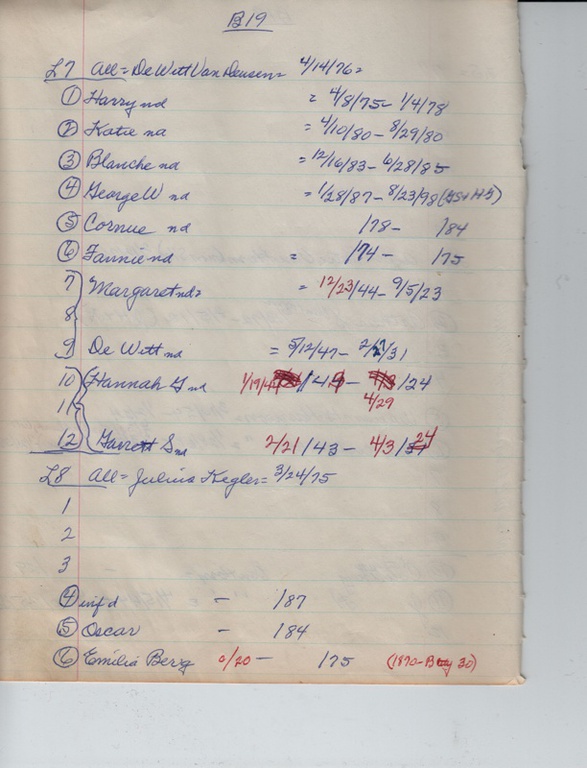 B19
L7 All = DeWitt Van Deusen = 4/14/76 =
① Harry nd = 4/8/75 - 1/4/78
② Katie nd = 4/10/80 - 8/29/80
③ Blanche nd = 12/16/83 - 6/28/85
④ George W nd = 1/28/87 - 8/23/98
⑤ Cornue nd /78 - /84
⑥ Fannie nd = /74 - /75
7 Margaret nd = 12/23/44 - 9/5/23
8
9 De Witt nd = 5/12/47 - /31
10 Hannah G nd 1/19/ /24
11 4/29
12 Garrett S nd 2/21/43 - 4/3/24
L8 All = Julius Kegler = 3/24/75
1
2
3
④ inf'd - /87
⑤ Oscar - /84
⑥ Emilia Berg 0/20 - /75 (1870 - 30)